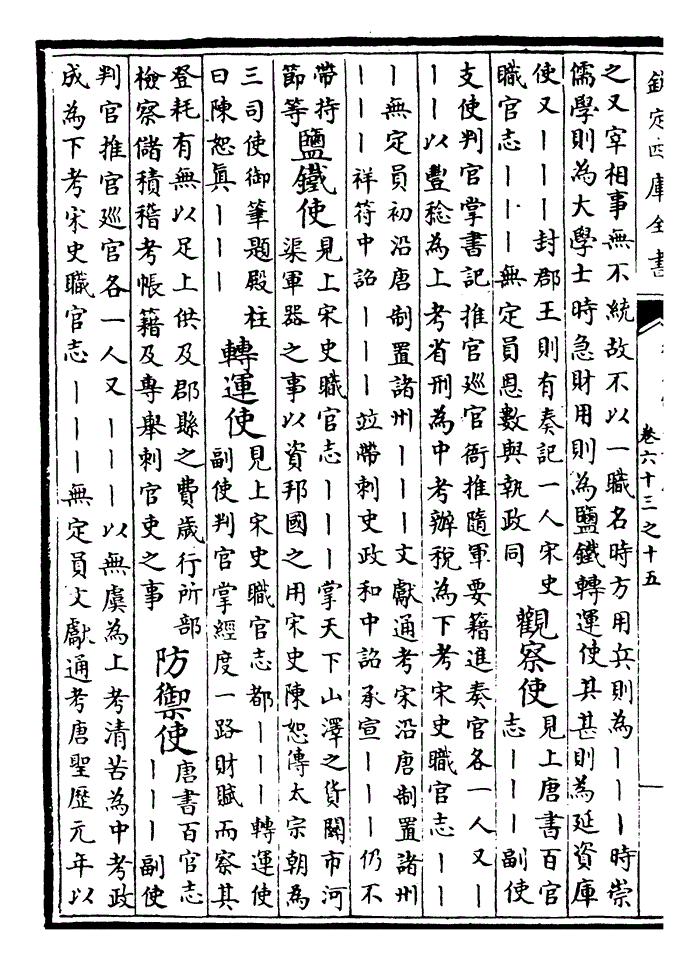 欽定四庫全書
卷六十三之十五
之又宰相事無不統故不以一職名時方用兵則為丨丨丨時崇
儒學則為大學士時急財用則為鹽鐵轉運使其甚則為延資庫
使又丨丨丨封郡王則有奏記一人宋史
職官志丨丨丨無定員恩數與執政同
觀察使
見上唐書百官
志丨丨丨副使
支使判官掌書記推官巡官衙推隨軍要籍進奏官各一人又丨
丨丨以豐稔為上考省刑為中考辦稅為下考宋史職官志丨丨
丨無定員初沿唐制置諸州丨丨丨文獻通考宋沿唐制置諸州
丨丨丨祥符中詔丨丨丨竝帶刺史政和中詔承宣丨丨丨仍不
帶持
節等
鹽鐵使
見上宋史職官志丨丨丨掌天下山澤之貨關市河
渠軍器之事以資邦國之用宋史陳恕傳太宗朝為
三司使御筆題殿柱
曰陳恕眞丨丨丨
轉運使
見上宋史職官志都丨丨丨轉運使
副使判官掌經度一路財賦而察其
登耗有無以足上供及郡縣之費歲行所部
檢察儲積稽考帳籍及專舉刺官吏之事
防禦使
唐書百官志
丨丨丨副使
判官推官巡官各一人又丨丨丨以無虞為上考清苦為中考政
成為下考宋史職官志丨丨丨無定員文獻通考唐聖歷元年以